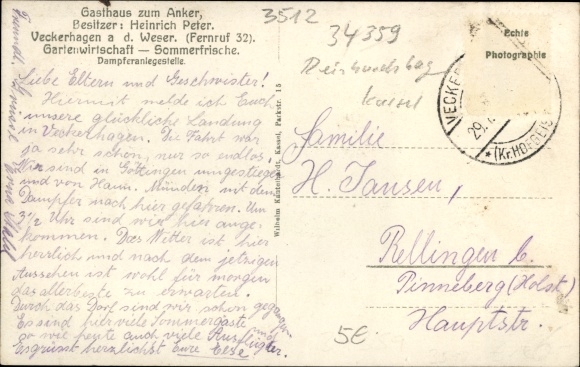 Gasthaus zum Anker,
Besitzer: Heinrich Peter.
Veckerhagen a d. Weser. (Fernruf 32).
Gartenwirtschaft — Sommerfrische.
Dampferanlegestelle.
Liebe Eltern und Geschwister!
Hiermit melde ich Euch
unsere glückliche Landung
in Veckerhagen. Die Fahrt war
ja sehr schön, nur so endlos.
Wir sind in Göttingen umgestiegen
und von Hann. Münden mit dem
Dampfer nach hier gefahren. Um
3½ Uhr sind wir hier ange-
kommen. Das Wetter ist hier
herrlich und nach dem jetzigen
Aussehen ist wohl für morgen
das allerbeste zu erwarten.
Durch das Dorf sind wir schon gegangen
Es sind hier viele Sommergäste und
so wie heute auch viele Ausflügler.
Es grüsst herzlichst Eure Lese.
Wilhelm Kästenholdt, Kassel, Parkstr. 15
3512
34359
Reinhardshag
Kassel
Echte
Photographie
VECKER
29.
* (Kr. HOFGEIS
Familie
H. Jansen,
Rellingen b.
Pinneberg (Holst)
Hauptstr.
5€